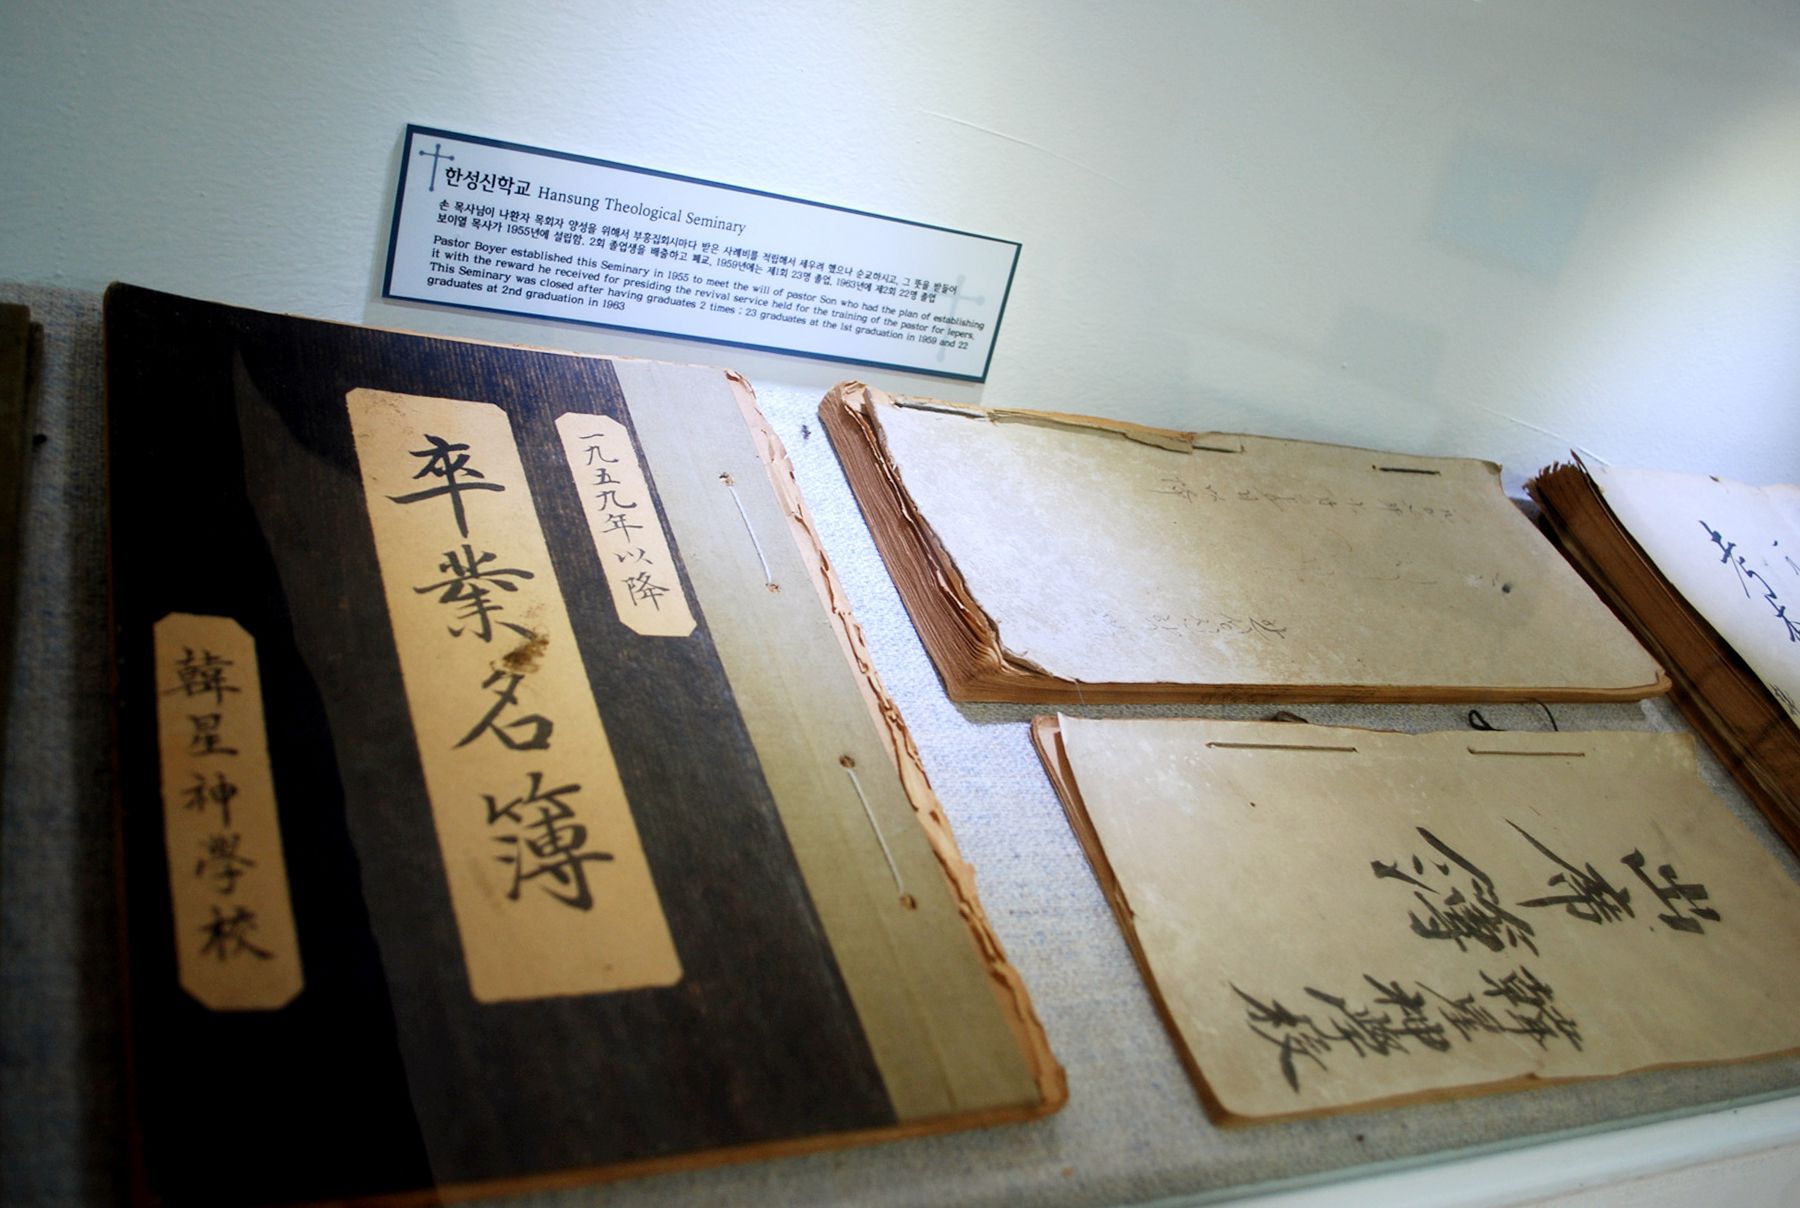 한성신학교 Hansung Theological Seminary
손 목사님이 나환자 목회자 양성을 위해서 부흥집회시마다 받은 사례비를 적립해서 세우려 했으나 순교하시고, 그 뜻을 받들어
보이열 목사가 1955년에 설립함. 2회 졸업생을 배출하고 폐교, 1959년에는 제1회 23명 졸업, 1963년에 제2회 22명 졸업
Pastor Boyer established this Seminary in 1955 to meet the will of pastor Son who had the plan of establishing
it with the reward he received for presiding the revival service held for the training of the pastor for lepers.
This Seminary was closed after having graduates 2 times ; 23 graduates at the 1st graduation in 1959 and 22
graduates at 2nd graduation in 1963
一九五九年以降
卒業名簿
韓星神學校
出席簿
韓星神學校
考